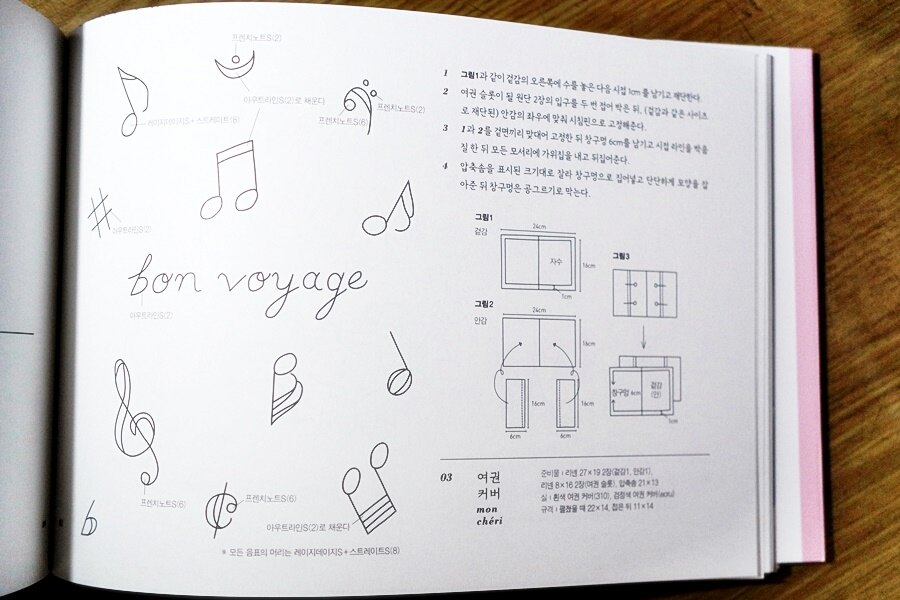 프렌치노트S(2)
아우트라인S(2)로 채운다
레이지데이지S+스트레이트S(8)
프렌치노트S(6)
프렌치노트S(2)
아우트라인S(2)
bon voyage
아우트라인S(2)
프렌치노트S(6)
프렌치노트S(6)
아우트라인S(2)로 채운다
* 모든 음표의 머리는 레이지데이지S+스트레이트S(8)
1 그림1과 같이 겉감의 오른쪽에 수를 놓은 다음 시접 1cm를 남기고 재단한다.
2 여권 슬롯이 될 원단 2장의 입구를 두 번 접어 박은 뒤, (겉감과 같은 사이즈
로 재단된) 안감의 좌우에 맞춰 시침핀으로 고정해준다.
3 1과 2를 겉면끼리 맞대어 고정한 뒤 창구멍 6cm를 남기고 시접 라인을 박음
질 한 뒤 모든 모서리에 가위집을 내고 뒤집어준다.
4 압축솜을 표시된 크기대로 잘라 창구멍으로 집어넣고 단단하게 모양을 잡
아준 뒤 창구멍은 공그르기로 막는다.
그림1
겉감
24cm
자수
16cm
1cm
그림2
안감
24cm
16cm
16cm
16cm
6cm
6cm
그림3
창구멍 6cm
겉감
(안)
1cm
03 여권
커버
mon
chéri
준비물 : 리넨 27×19 2장(겉감1, 안감1),
리넨 8×16 2장(여권 슬롯), 압축솜 21×13
실 : 흰색 여권 커버(310), 검정색 여권 커버(ecru)
규격 : 펼쳤을 때 22×14, 접은 뒤 11×14